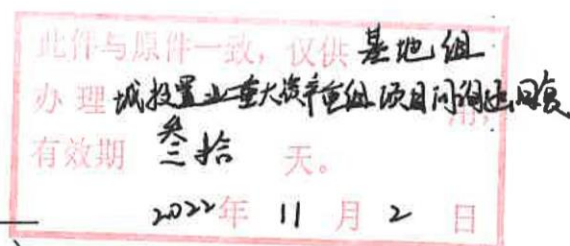 此件与原件一致，仅供 基地组
办理 城投置业重大资产重组项目问询函回复 用，
有效期 叁拾 天。
2022年 11 月 2 日